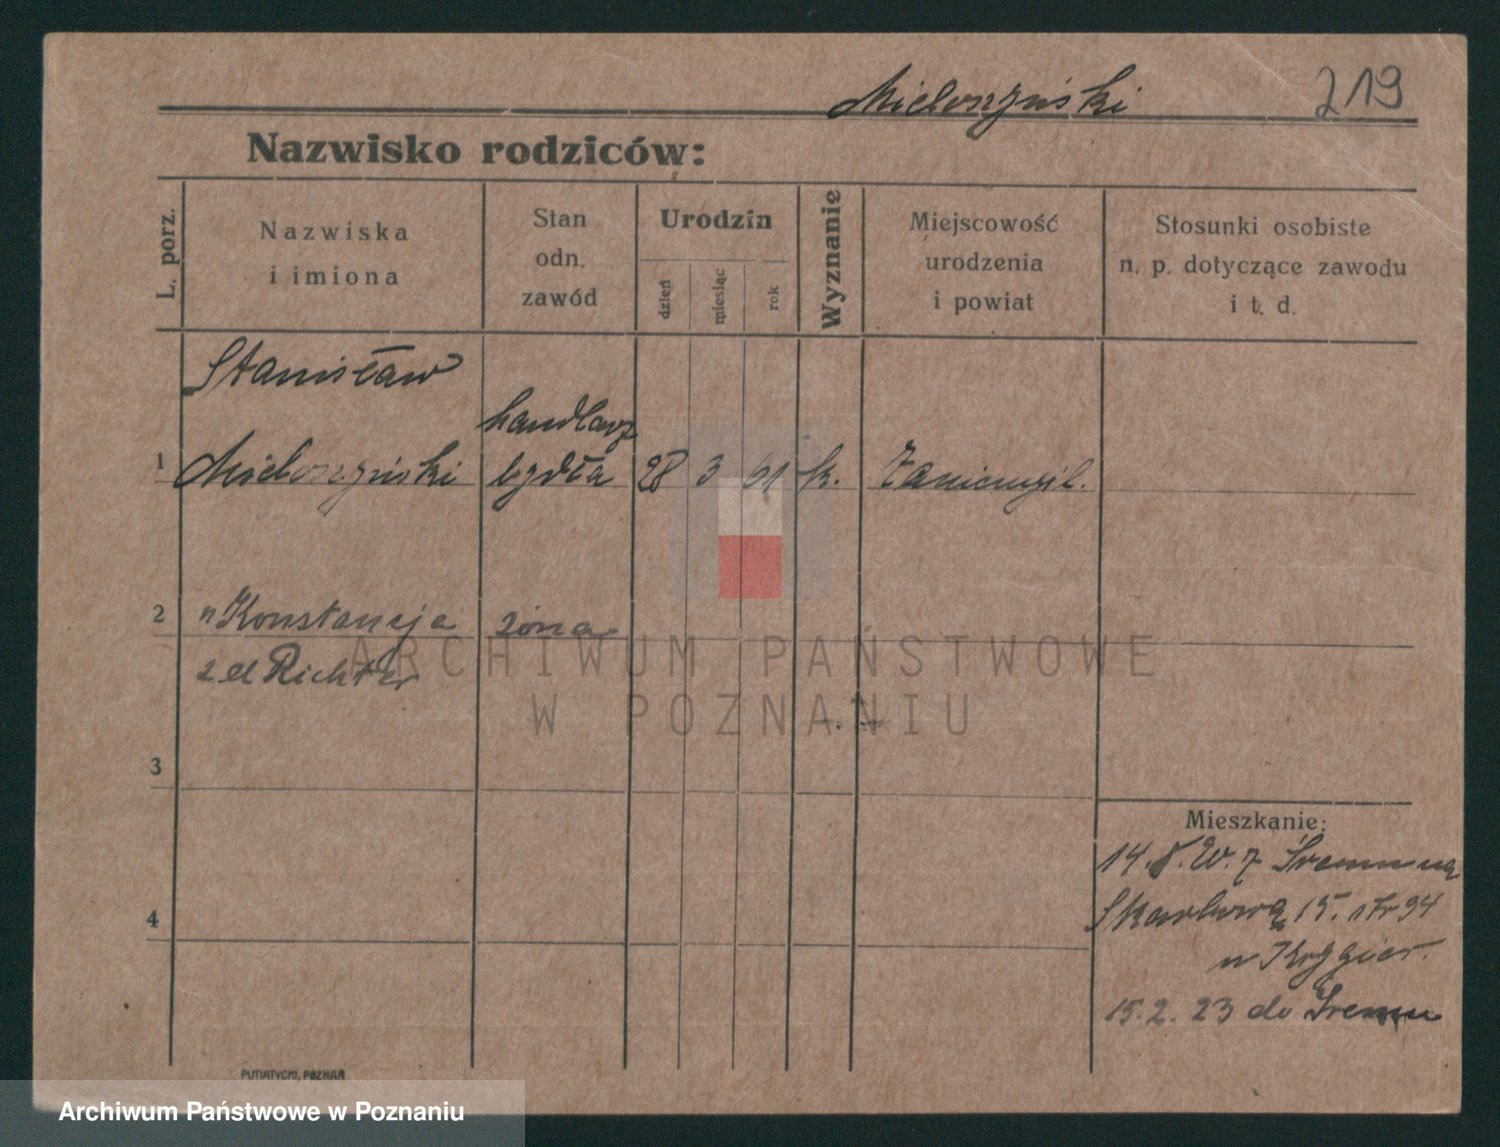 Mieloszyński 219
Nazwisko rodziców:
L. porz.
Nazwiska
i imiona
Stan
odn.
zawód
Urodzin
dzień
miesiąc
rok
Wyznanie
Miejscowość
urodzenia
i powiat
Stosunki osobiste
n. p. dotyczące zawodu
i t. d.
Stanisław
handlarz
1 Mieloszyński bydła 28 3 61 k. Zaniemyśl.
2 " Konstancja żona
z d Richter
ARCHIWUM PAŃSTWOWE
W POZNANIU
3
4
Mieszkanie:
14. 8. 20. z Śremu na
Skarbową 15. str 94
u
15. 2. 23 do Śremu
PUTIATYCKI, POZNAŃ
Archiwum Państwowe w Poznaniu